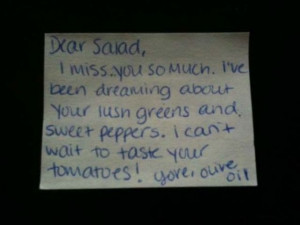 Dear Salad,
I miss you so much. I've
been dreaming about
your lush greens and
sweet peppers. I can't
wait to taste your
tomatoes! Yore, olive
oil